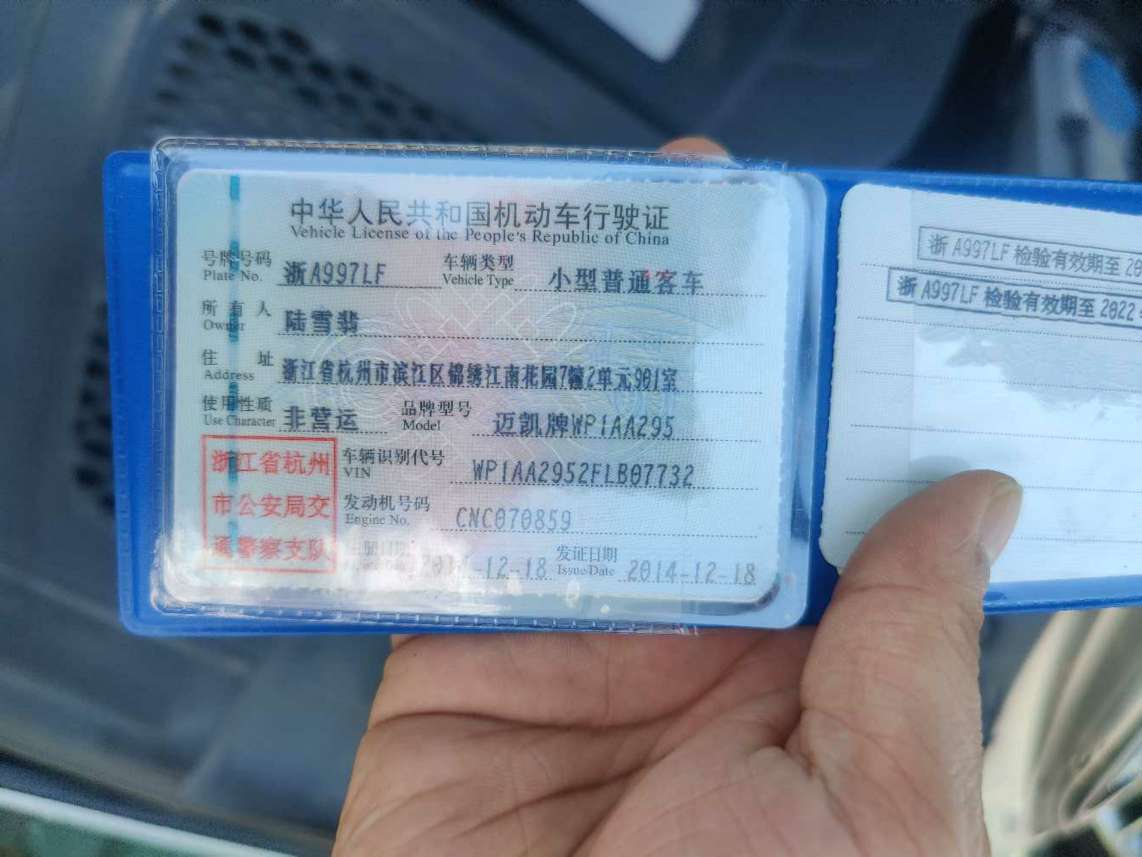 中华人民共和国机动车行驶证
Vehicle License of the People's Republic of China
号牌号码 浙A997LF 车辆类型 小型普通客车
Plate No. Vehicle Type
所有人 陆雪翡
Owner
住址 浙江省杭州市滨江区锦绣江南花园7幢2单元901室
Address
使用性质 非营运 品牌型号 迈凯牌WP1AA295
Use Character Model
浙江省杭州
市公安局交
通警察支队
车辆识别代号 WP1AA2952FLB07732
VIN
发动机号码 CNC070859
Engine No.
注册日期 2014-12-18 发证日期 2014-12-18
Issue Date
浙A997LF 检验有效期至 20
浙A997LF 检验有效期至 2022